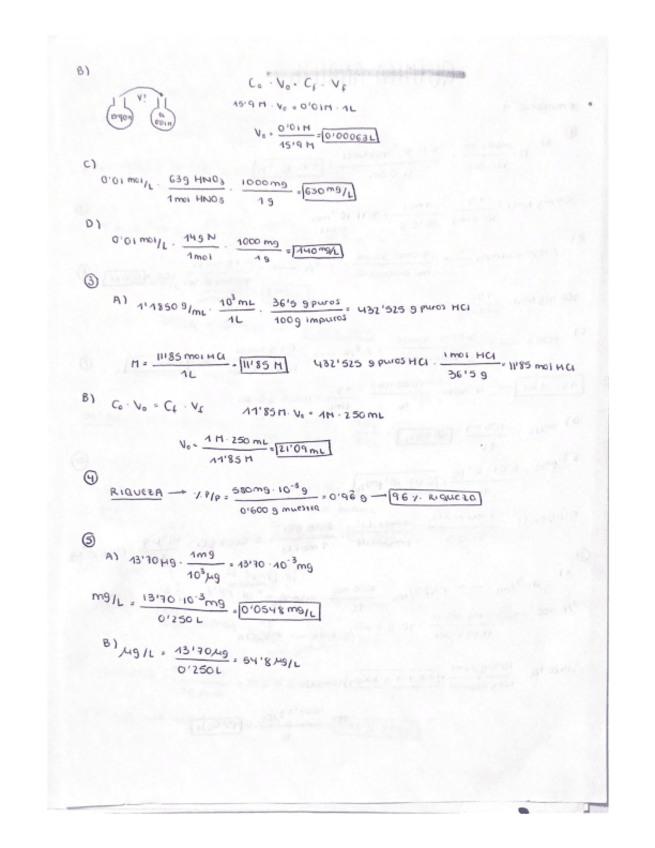 B)
V?
C₀ · V₀ = Cf · Vf
15'9 M · V₀ = 0'01M · 1L
V₀ = 0'01M / 15'9 M = 0'00063L
C)
0'01 mol/L · 63g HNO3 / 1mol HNO3 · 1000mg / 1g = 630 mg/L
D)
0'01 mol/L · 14g N / 1mol · 1000 mg / 1g = 140 mg/L
③
A) 1'1850 g/mL · 10³ mL / 1L · 36'5 g puros / 100g impuros = 432'525 g puros HCl
M = 11'85 mol HCl / 1L = 11'85 M 432'525 g puros HCl · 1 mol HCl / 36'5 g = 11'85 mol HCl
B) C₀ · V₀ = Cf · Vf 11'85M · V₀ = 1M · 250mL
V₀ = 1M · 250 mL / 11'85 M = 21'09 mL
④
RIQUEZA → % P/P = 580mg · 10⁻³g / 0'600 g muestra = 0'96 g → 96 % RIQUEZA
⑤
A) 13'70 μg · 1mg / 10³μg = 13'70 · 10⁻³ mg
mg/L = 13'70 · 10⁻³ mg / 0'250 L = 0'0548 mg/L
B) μg/L = 13'70 μg / 0'250L = 54'8 μg/L